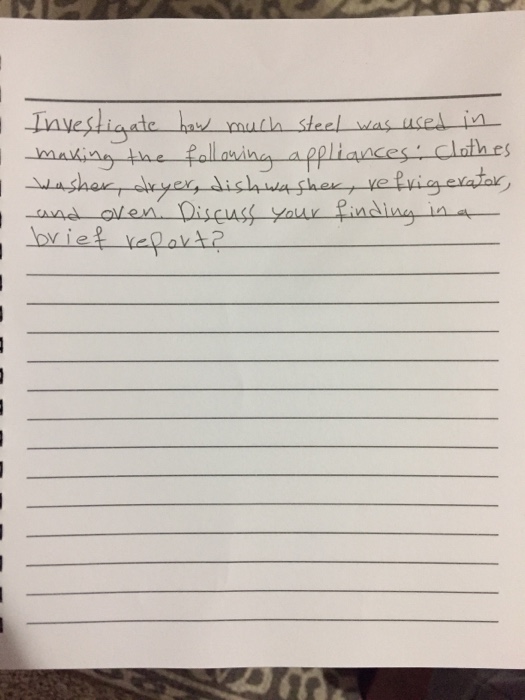 Investigate how much steel was used in
making the following appliances: Clothes
washer, dryer, dishwasher, refrigerator,
and oven. Discuss your finding in a
brief report?